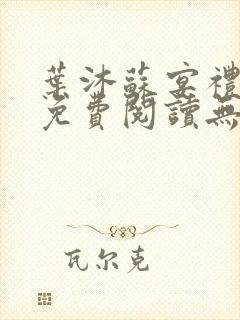 葉沐蘇宴禮
免費閱讀無
瓦尔克